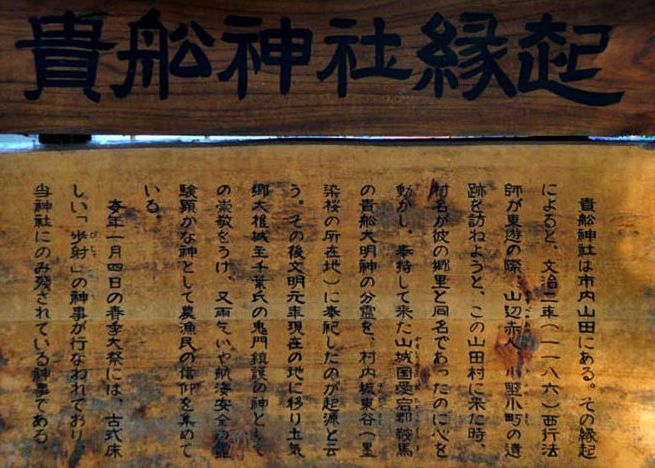 貴船神社縁起
貴船神社は市内山田にある。その縁起
によると、文治二年(一一八六)西行法
師が東遊の際、山辺赤人、小野小町の遺
跡を訪ねようと、この山田村に来た時、
村名が彼の郷里と同名であったのに心を
動かし、奉持して来た山城国愛宕郡鞍馬
の貴船大明神の分霊を、村内城東谷(墨
染桜の所在地)に奉祀したのが起源と云
う。その後文明元年現在の地に移り土気
郷大椎城主千葉氏の鬼門鎮護の神として
の崇敬をうけ、又雨乞いや航海安全の霊
験顕かな神として農漁民の信仰を集めて
いる。
毎年一月四日の春季大祭には、古式床
しい「歩射」の神事が行なわれており
当神社にのみ残されている神事である。